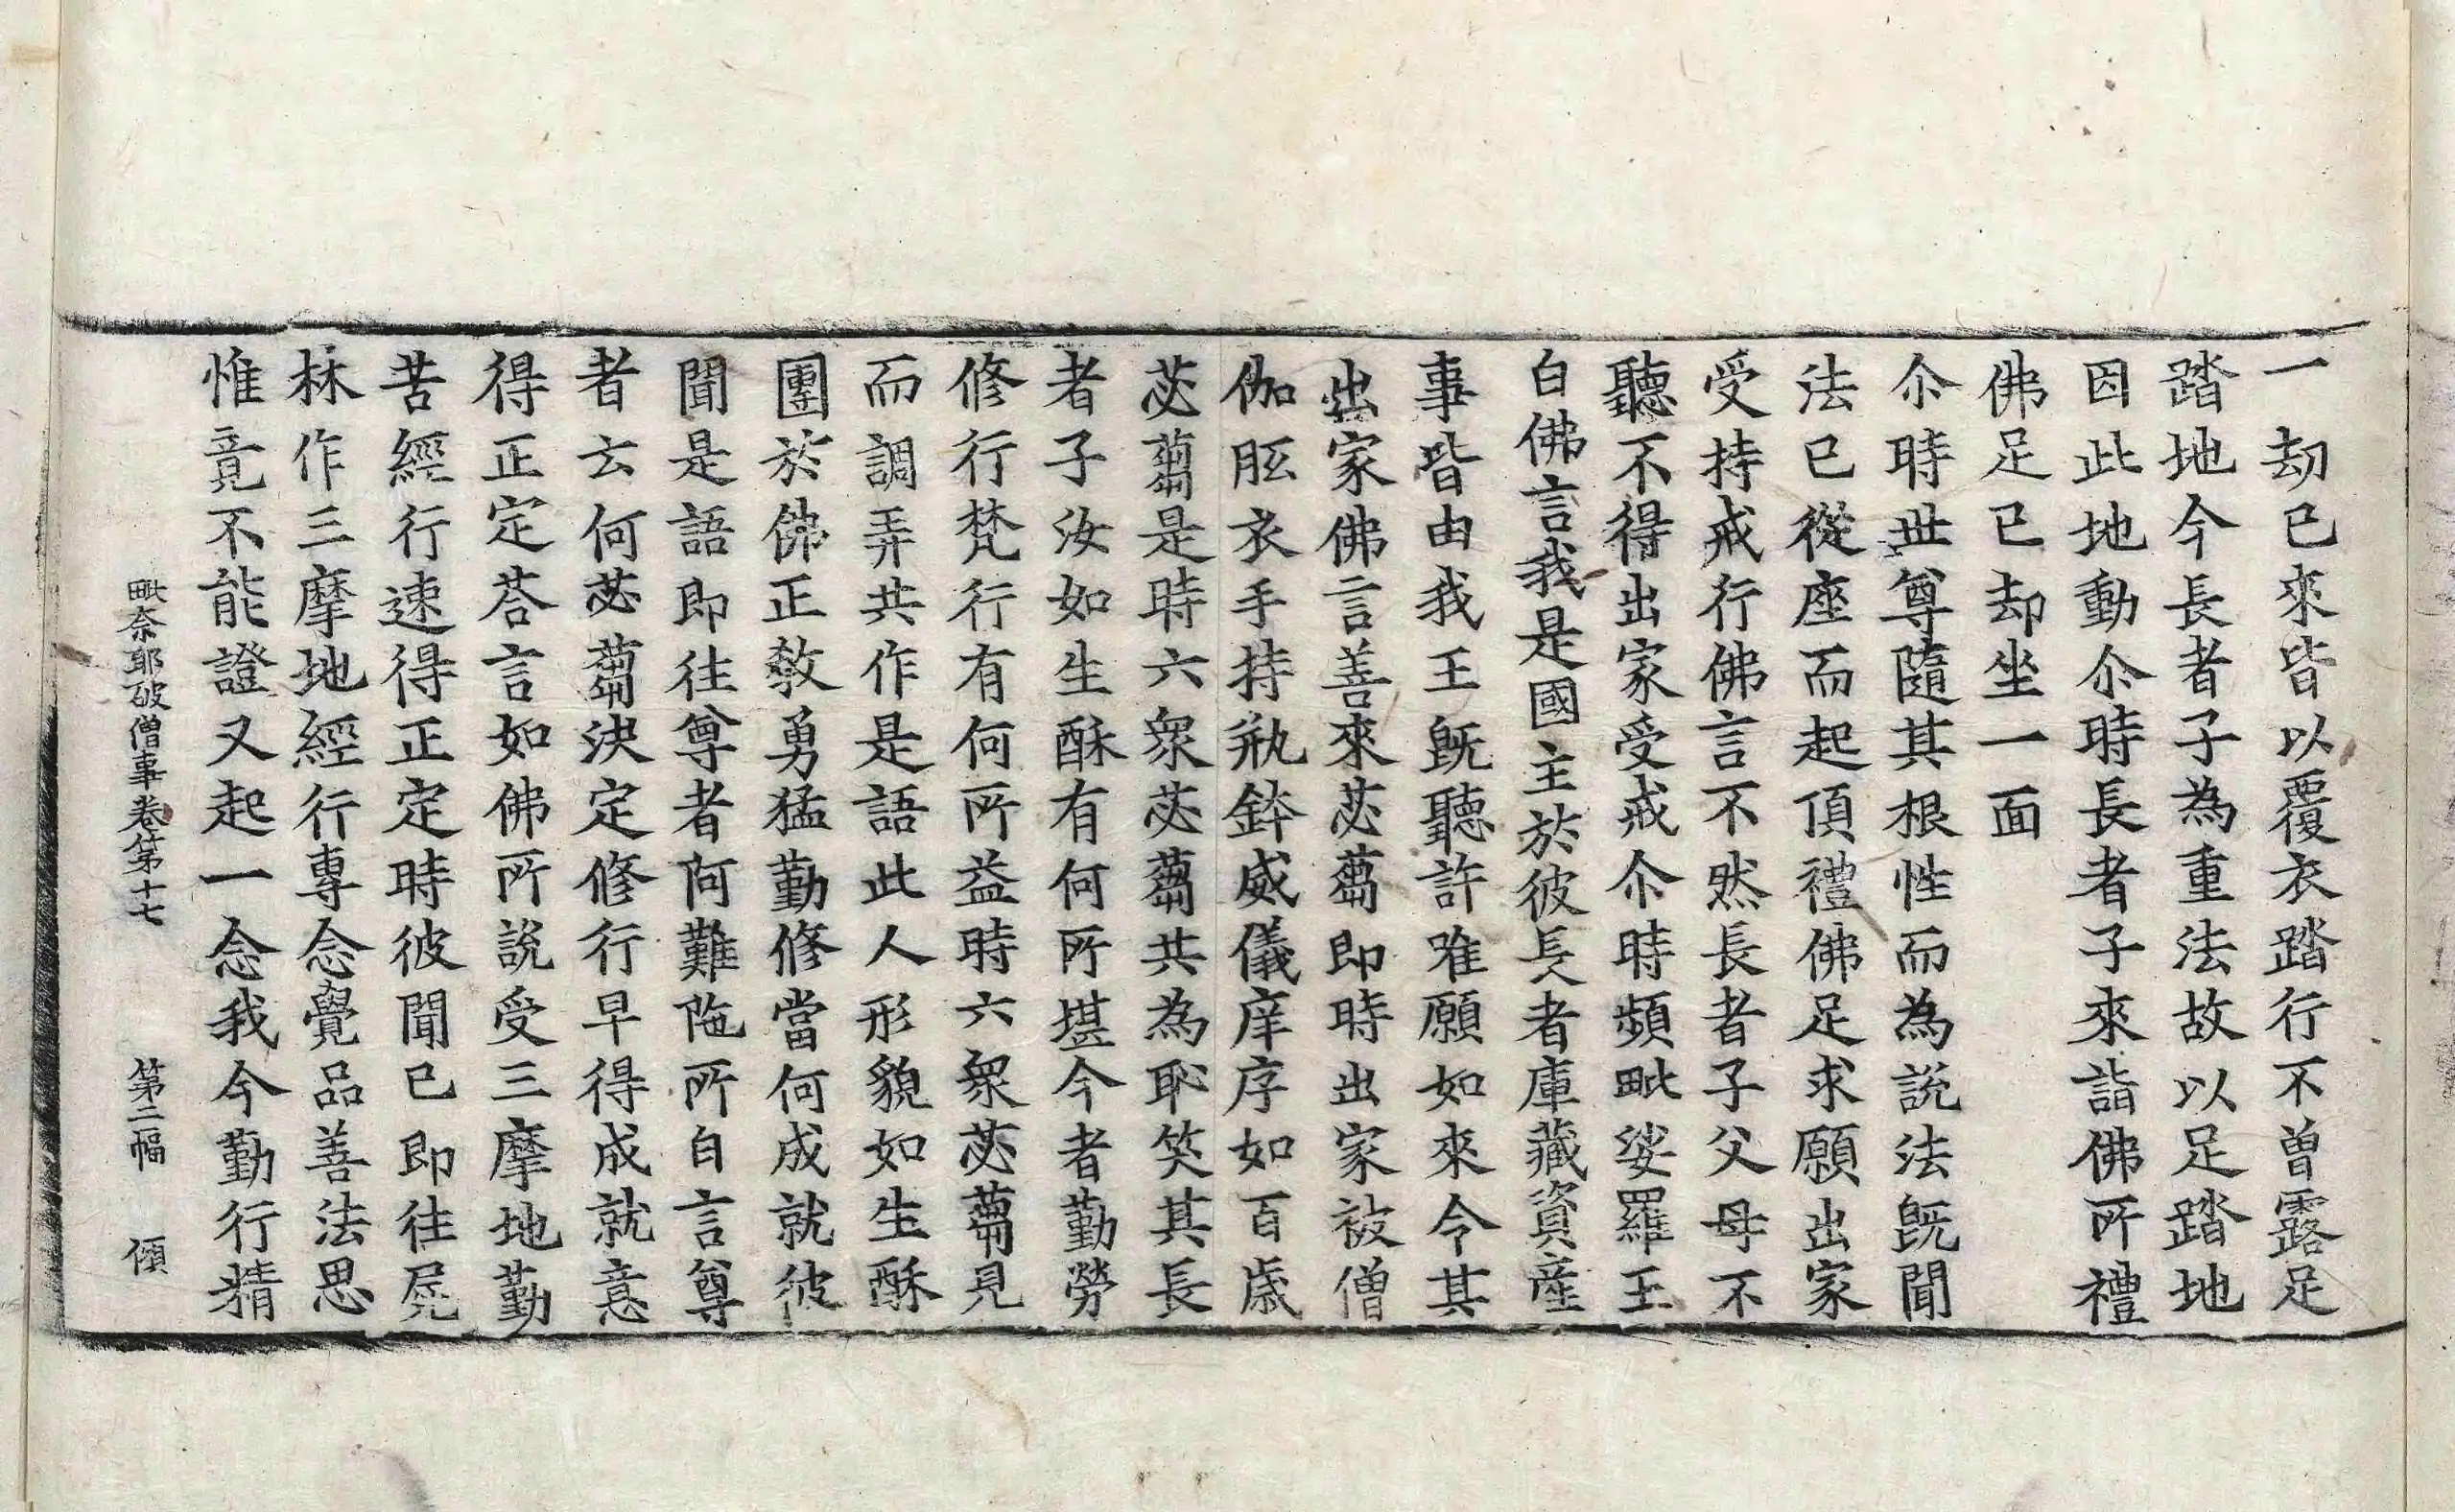 一劫已來皆以覆衣踏行不曾露足
踏地今長者子為重法故以足踏地
因此地動尒時長者子來詣佛所禮
佛足已却坐一面
尒時世尊隨其根性而為說法既聞
法已從座而起頂禮佛足求願出家
受持戒行佛言不然長者子父母不
聽不得出家受戒尒時頻毗娑羅王
白佛言我是國主於彼長者庫藏資産
事皆由我王既聽許唯願如來令其
出家佛言善來苾蒭即時出家被僧
伽胝衣手持瓶鉢威儀庠序如百歳
苾蒭是時六衆苾蒭共為恥笑其長
者子汝如生酥有何所堪今者勤勞
修行梵行有何所益時六衆苾蒭見
而調弄共作是語此人形貌如生酥
團於佛正教勇猛勤修當何成就彼
聞是語即往尊者阿難陁所白言尊
者云何苾蒭決定修行早得成就意
得正定荅言如佛所說受三摩地勤
苦經行速得正定時彼聞已即往屍
林作三摩地經行專念覺品善法思
惟竟不能證又起一念我今勤行精
毗奈耶破僧事卷第十七 第二幅 傾